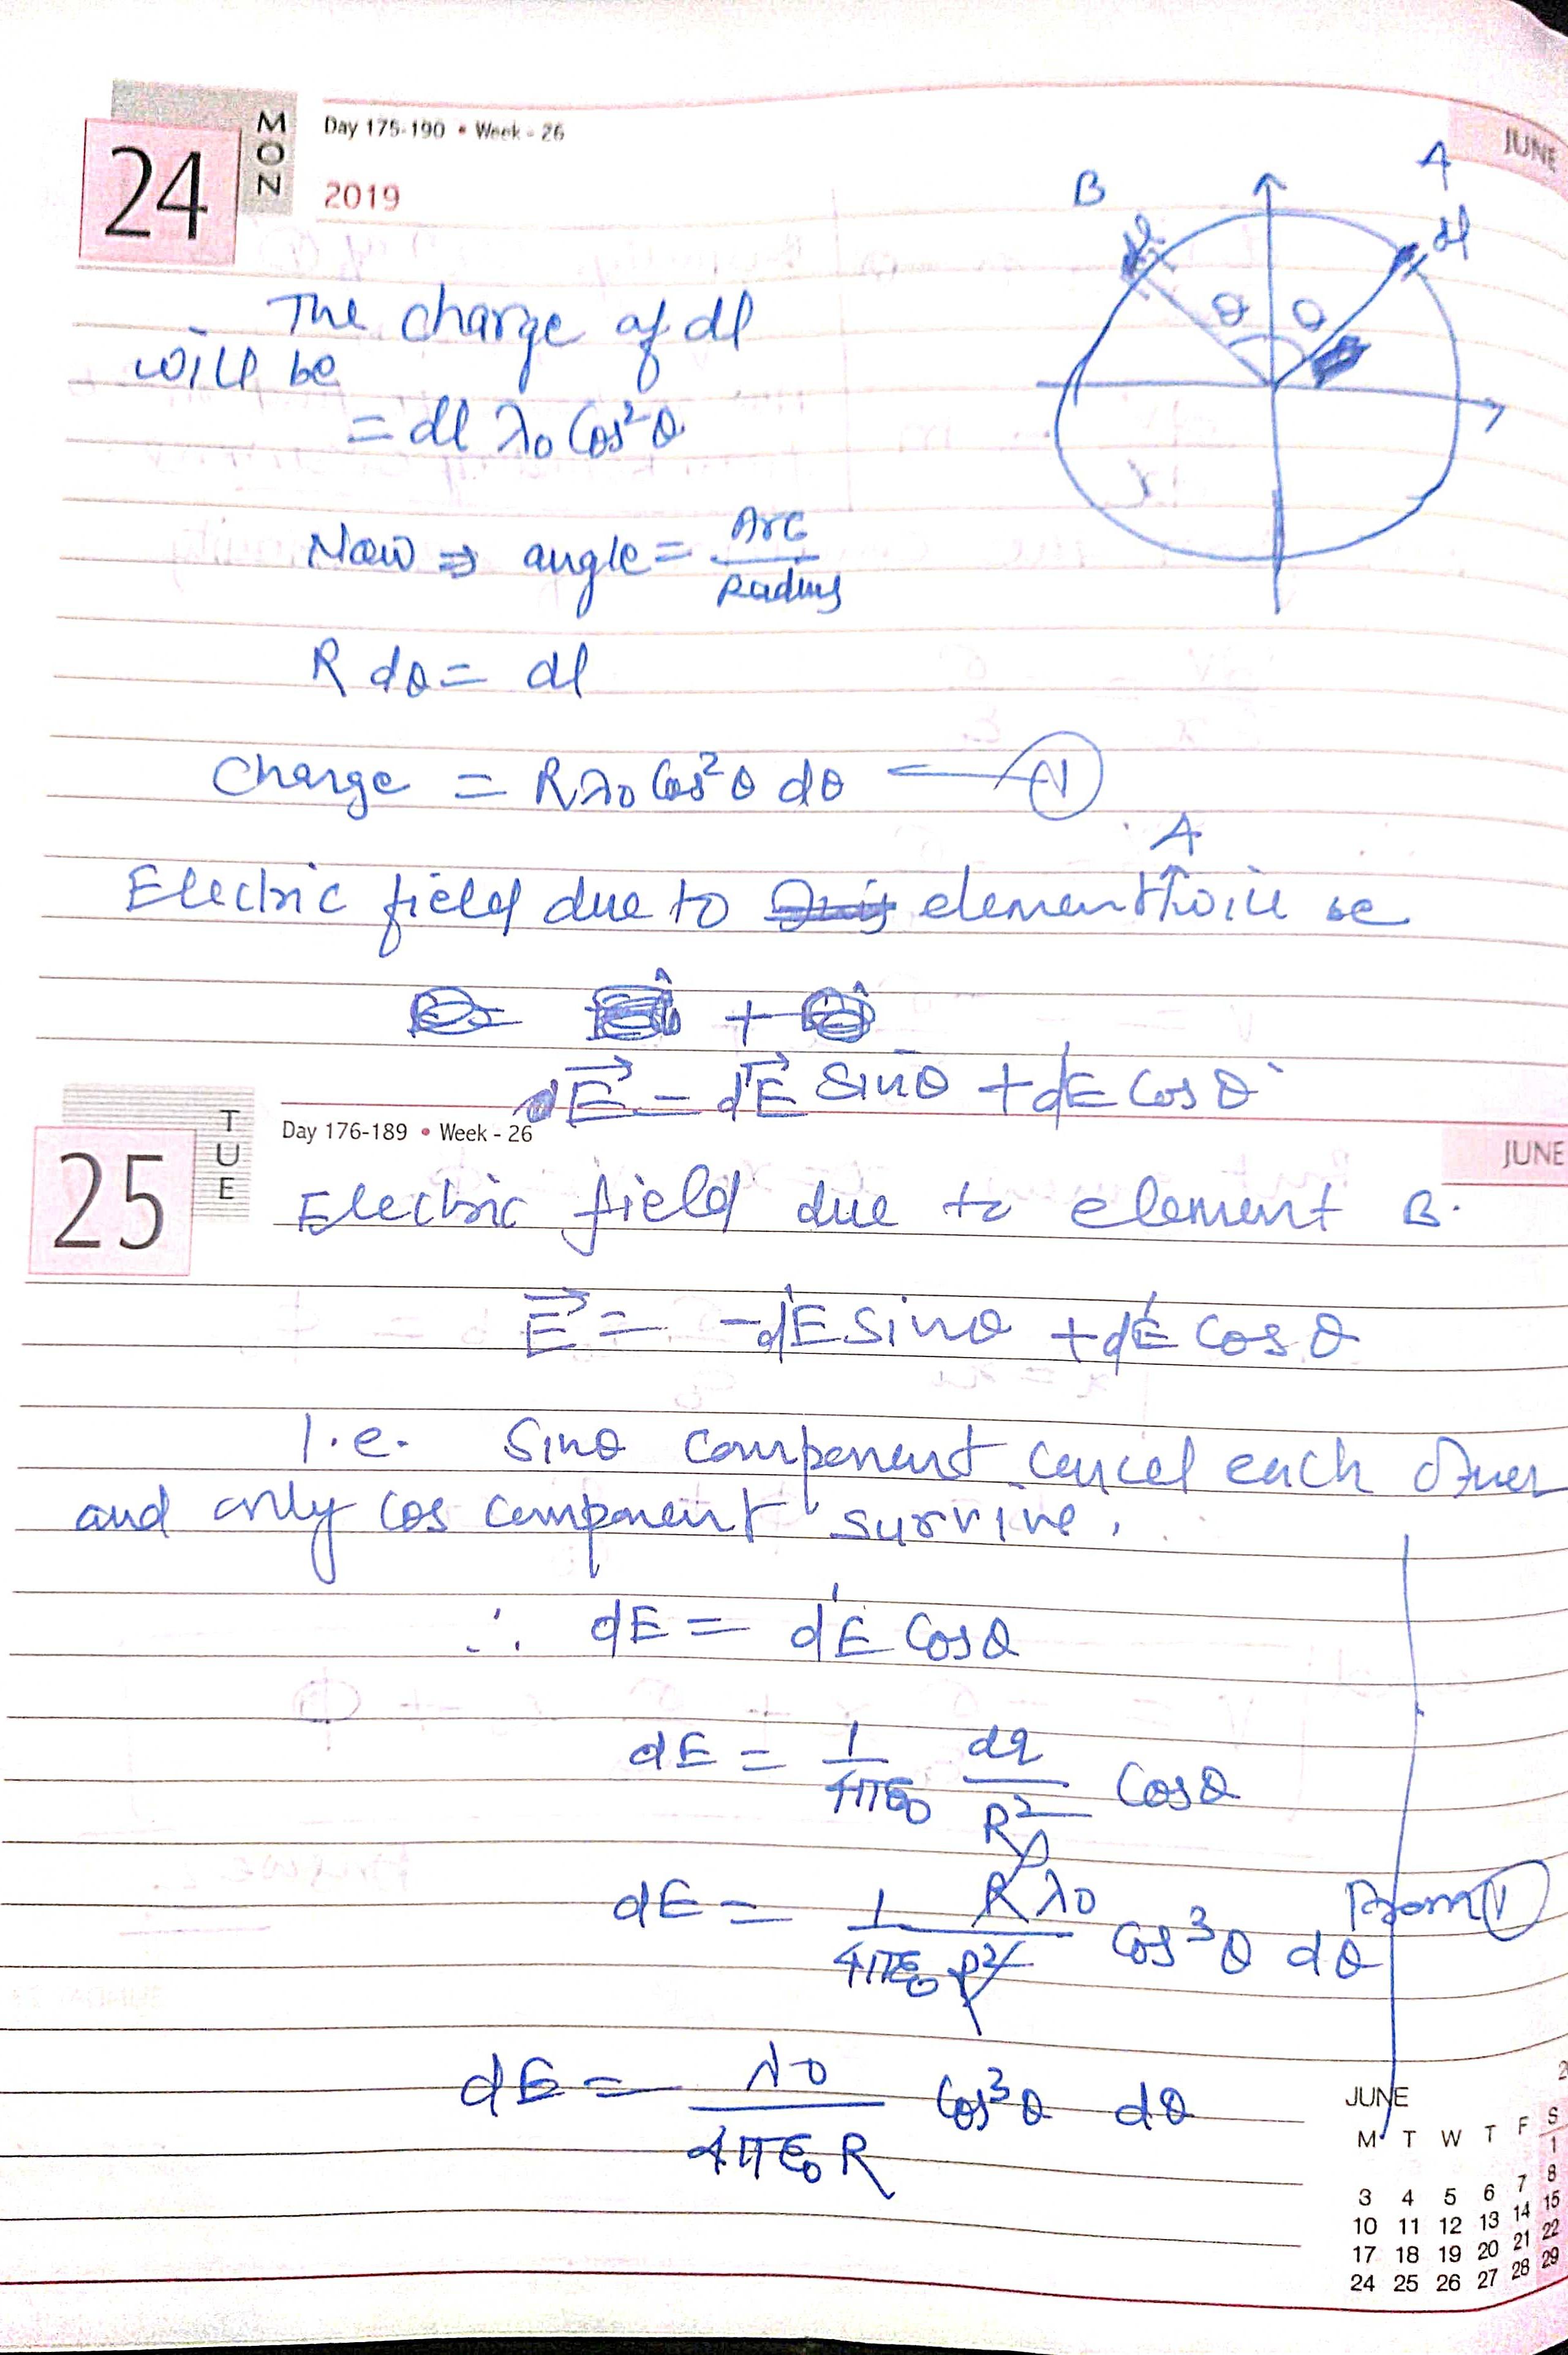 24
MON
Day 175-190 • Week - 26
2019
JUNE
B
A
dl
θ θ
The charge of dl
will be
= dl λ0 Cos²θ
Now ⇒ angle = Arc / Radius
R dθ = dl
Charge = Rλ0 Cos²θ dθ
A
Electric field due to element will be
dE = dE Sinθ + dE Cosθ
25
TUE
Day 176-189 • Week - 26
JUNE
Electric field due to element B.
E = -dE Sinθ + dE Cosθ
I.e. Sinθ component cancel each other
and only Cos component survive.
∴ dE = dE Cosθ
dE = 1/4πε0 dq/R² Cosθ
dE = 1/4πε0 Rλ0/R² Cos³θ dθ From
dE = λ0/4πε0R Cos³θ dθ
JUNE
M T W T F S
1
3 4 5 6 7 8
10 11 12 13 14 15
17 18 19 20 21 22
24 25 26 27 28 29